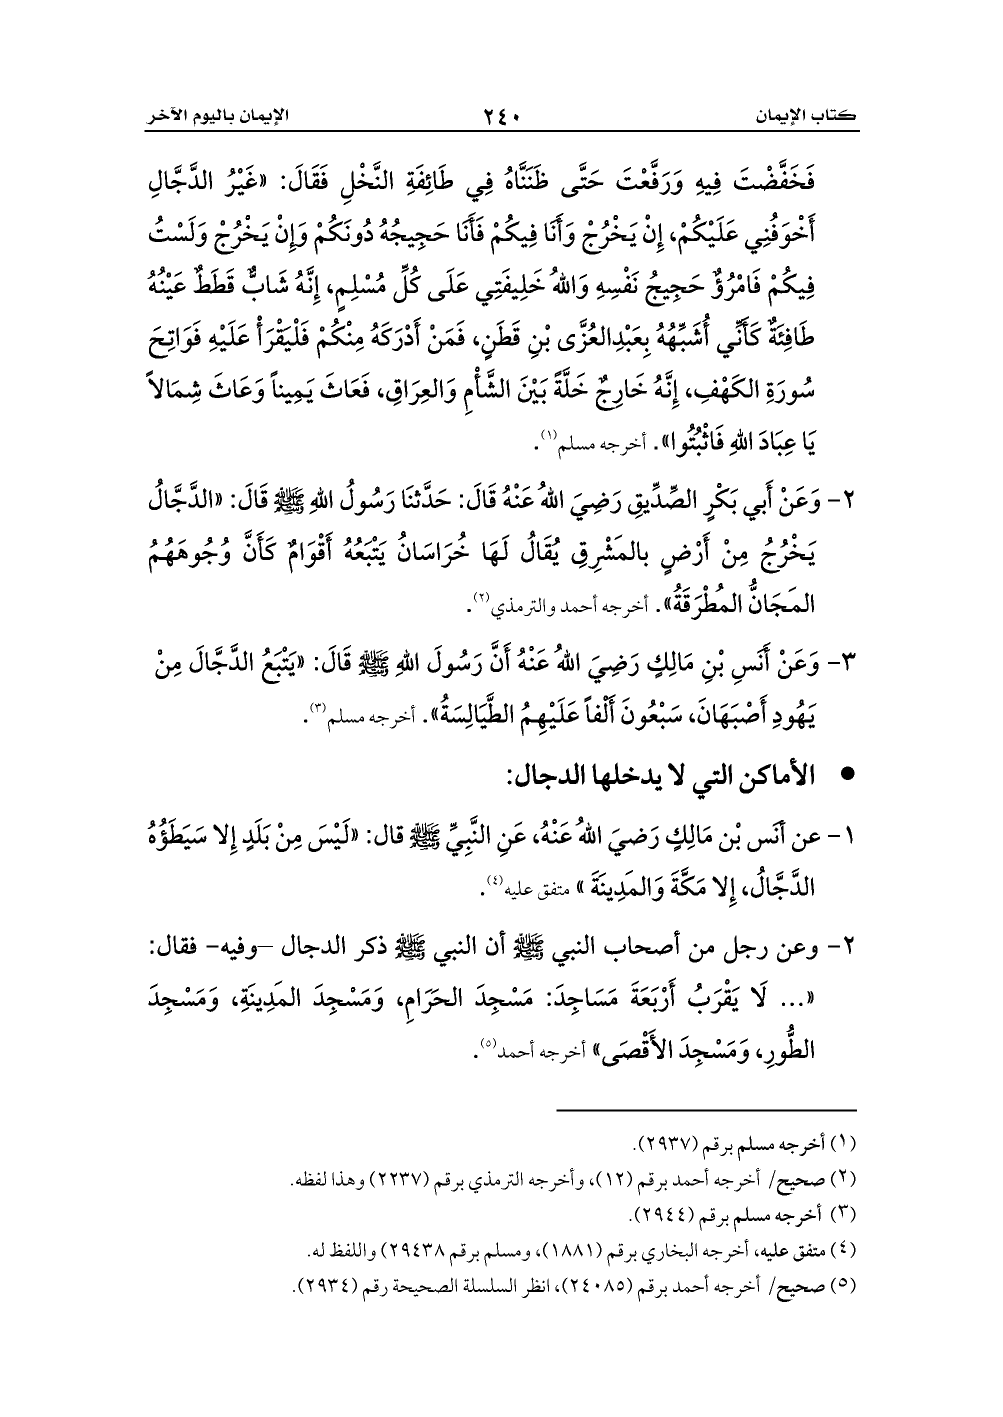 كتاب الإيمان ٢٤٠ الإيمان باليوم الآخر
فَخَفَّضْتَ فِيهِ وَرَفَّعْتَ حَتَّى ظَنَنَّاهُ فِي طَائِفَةِ النَّخْلِ فَقَالَ: «غَيْرُ الدَّجَّالِ
أَخْوَفُنِي عَلَيْكُمْ، إِنْ يَخْرُجْ وَأَنَا فِيكُمْ فَأَنَا حَجِيجُهُ دُونَكُمْ وَإِنْ يَخْرُجْ وَلَسْتُ
فِيكُمْ فَامْرُؤٌ حَجِيجُ نَفْسِهِ وَاللهُ خَلِيفَتِي عَلَى كُلِّ مُسْلِمٍ، إِنَّهُ شَابٌّ قَطَطٌ عَيْنُهُ
طَافِئَةٌ كَأَنِّي أُشَبِّهُهُ بِعَبْدِالعُزَّى بْنِ قَطَنٍ، فَمَنْ أَدْرَكَهُ مِنْكُمْ فَلْيَقْرَأْ عَلَيْهِ فَوَاتِحَ
سُورَةِ الكَهْفِ، إِنَّهُ خَارِجٌ خَلَّةً بَيْنَ الشَّأْمِ وَالعِرَاقِ، فَعَاثَ يَمِيناً وَعَاثَ شِمَالاً
يَا عِبَادَ اللهِ فَاثْبُتُوا». أخرجه مسلم(١).
٢- وَعَنْ أَبي بَكْرٍ الصِّدِّيقِ رَضِيَ اللهُ عَنْهُ قَالَ: حَدَّثَنَا رَسُولُ اللهِ ﷺ قَالَ: «الدَّجَّالُ
يَخْرُجُ مِنْ أَرْضٍ بالمَشْرِقِ يُقَالُ لَهَا خُرَاسَانُ يَتْبَعُهُ أَقْوَامٌ كَأَنَّ وُجُوهَهُمُ
المَجَانُّ المُطْرَقَةُ». أخرجه أحمد والترمذي(٢).
٣- وَعَنْ أَنَسِ بْنِ مَالِكٍ رَضِيَ اللهُ عَنْهُ أَنَّ رَسُولَ اللهِ ﷺ قَالَ: «يَتْبَعُ الدَّجَّالَ مِنْ
يَهُودِ أَصْبَهَانَ، سَبْعُونَ أَلْفاً عَلَيْهِمُ الطَّيَالِسَةُ». أخرجه مسلم(٣).
● الأماكن التي لا يدخلها الدجال:
١- عن أنَس بْن مَالِكٍ رَضيَ اللهُ عَنْهُ، عَنِ النَّبِيِّ ﷺ قال: «لَيْسَ مِنْ بَلَدٍ إِلا سَيَطَؤُهُ
الدَّجَّالُ، إِلا مَكَّةَ وَالمَدِينَةَ» متفق عليه(٤).
٢- وعن رجل من أصحاب النبي ﷺ أن النبي ﷺ ذكر الدجال –وفيه- فقال:
«... لَا يَقْرَبُ أَرْبَعَةَ مَسَاجِدَ: مَسْجِدَ الحَرَامِ، وَمَسْجِدَ المَدِينَةِ، وَمَسْجِدَ
الطُّورِ، وَمَسْجِدَ الأَقْصَى» أخرجه أحمد(٥).
(١) أخرجه مسلم برقم (٢٩٣٧).
(٢) صحيح/ أخرجه أحمد برقم (١٢)، وأخرجه الترمذي برقم (٢٢٣٧) وهذا لفظه.
(٣) أخرجه مسلم برقم (٢٩٤٤).
(٤) متفق عليه، أخرجه البخاري برقم (١٨٨١)، ومسلم برقم ٢٩٤٣٨) واللفظ له.
(٥) صحيح/ أخرجه أحمد برقم (٢٤٠٨٥)، انظر السلسلة الصحيحة رقم (٢٩٣٤).